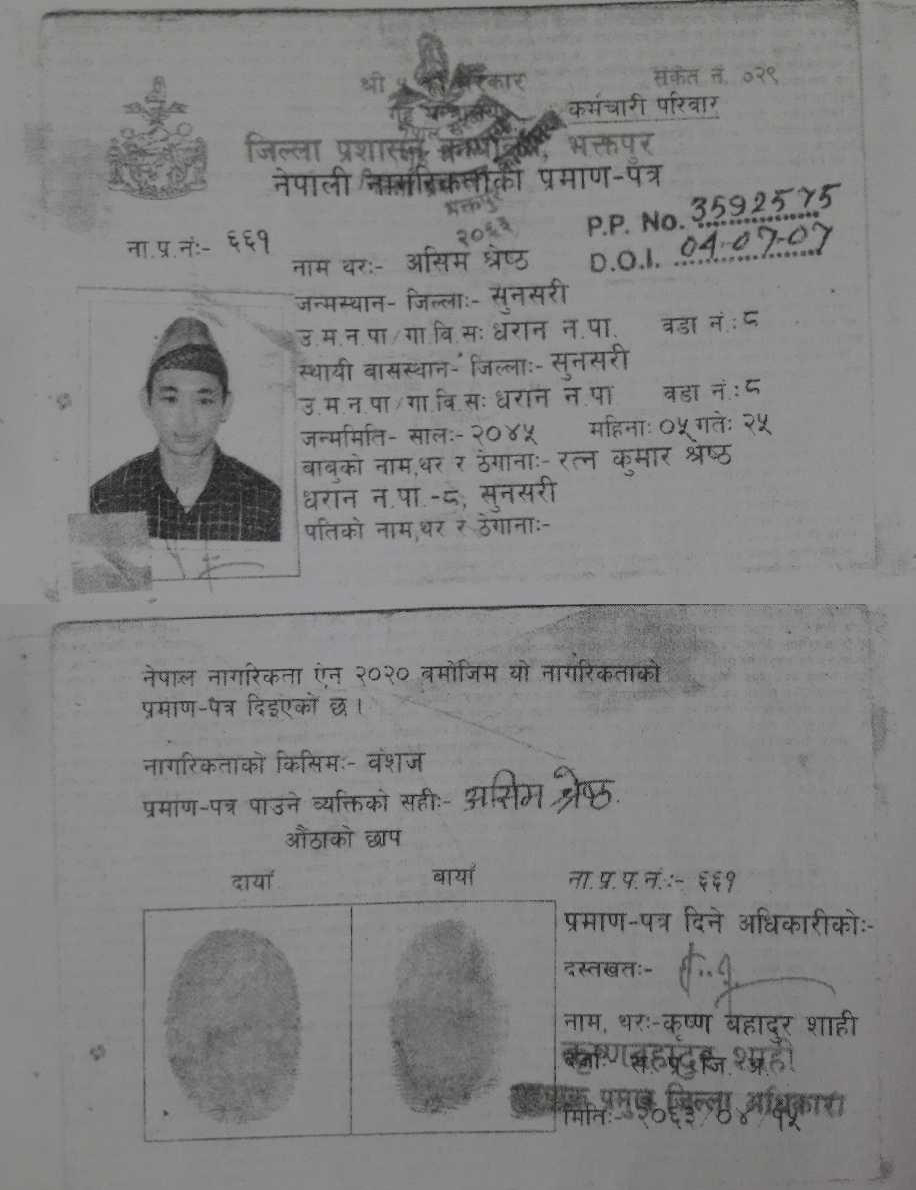 श्री ५ को सरकार
संकेत नं. ०२९
गृह मन्त्रालय
कर्मचारी परिवार
जिल्ला प्रशासन कार्यालय, भक्तपुर
नेपाली नागरिकताको प्रमाण-पत्र
भक्तपुर
२०६३
P.P. No. 3592575
ना.प्र.नं:- ६६१
D.O.I. 04-07-07
नाम थरः- असिम श्रेष्ठ
जन्मस्थान- जिल्लाः- सुनसरी
उ.म.न.पा/गा.वि.सः धरान न.पा. वडा नं.ः ८
स्थायी बासस्थान- जिल्लाः- सुनसरी
उ.म.न.पा/गा.वि.सः धरान न.पा वडा नं.ः ८
जन्ममिति- सालः- २०४५ महिनाः ०५ गतेः २५
बाबुको नाम,थर र ठेगानाः- रत्न कुमार श्रेष्ठ
धरान न.पा.-८, सुनसरी
पतिको नाम,थर र ठेगानाः-
नेपाल नागरिकता ऐन २०२० बमोजिम यो नागरिकताको
प्रमाण-पत्र दिइएको छ ।
नागरिकताको किसिमः- वंशज
प्रमाण-पत्र पाउने व्यक्तिको सहीः- असिम श्रेष्ठ
औंठाको छाप
दायाँ बायाँ
ना.प्र.प.नं.ः- ६६१
प्रमाण-पत्र दिने अधिकारीकोः-
दस्तखतः-
नाम, थरः-कृष्ण बहादुर शाही
कृष्णबहादुर शाही
प्रमुख जिल्ला अधिकारी
मितिः- २०६३/०४/१५